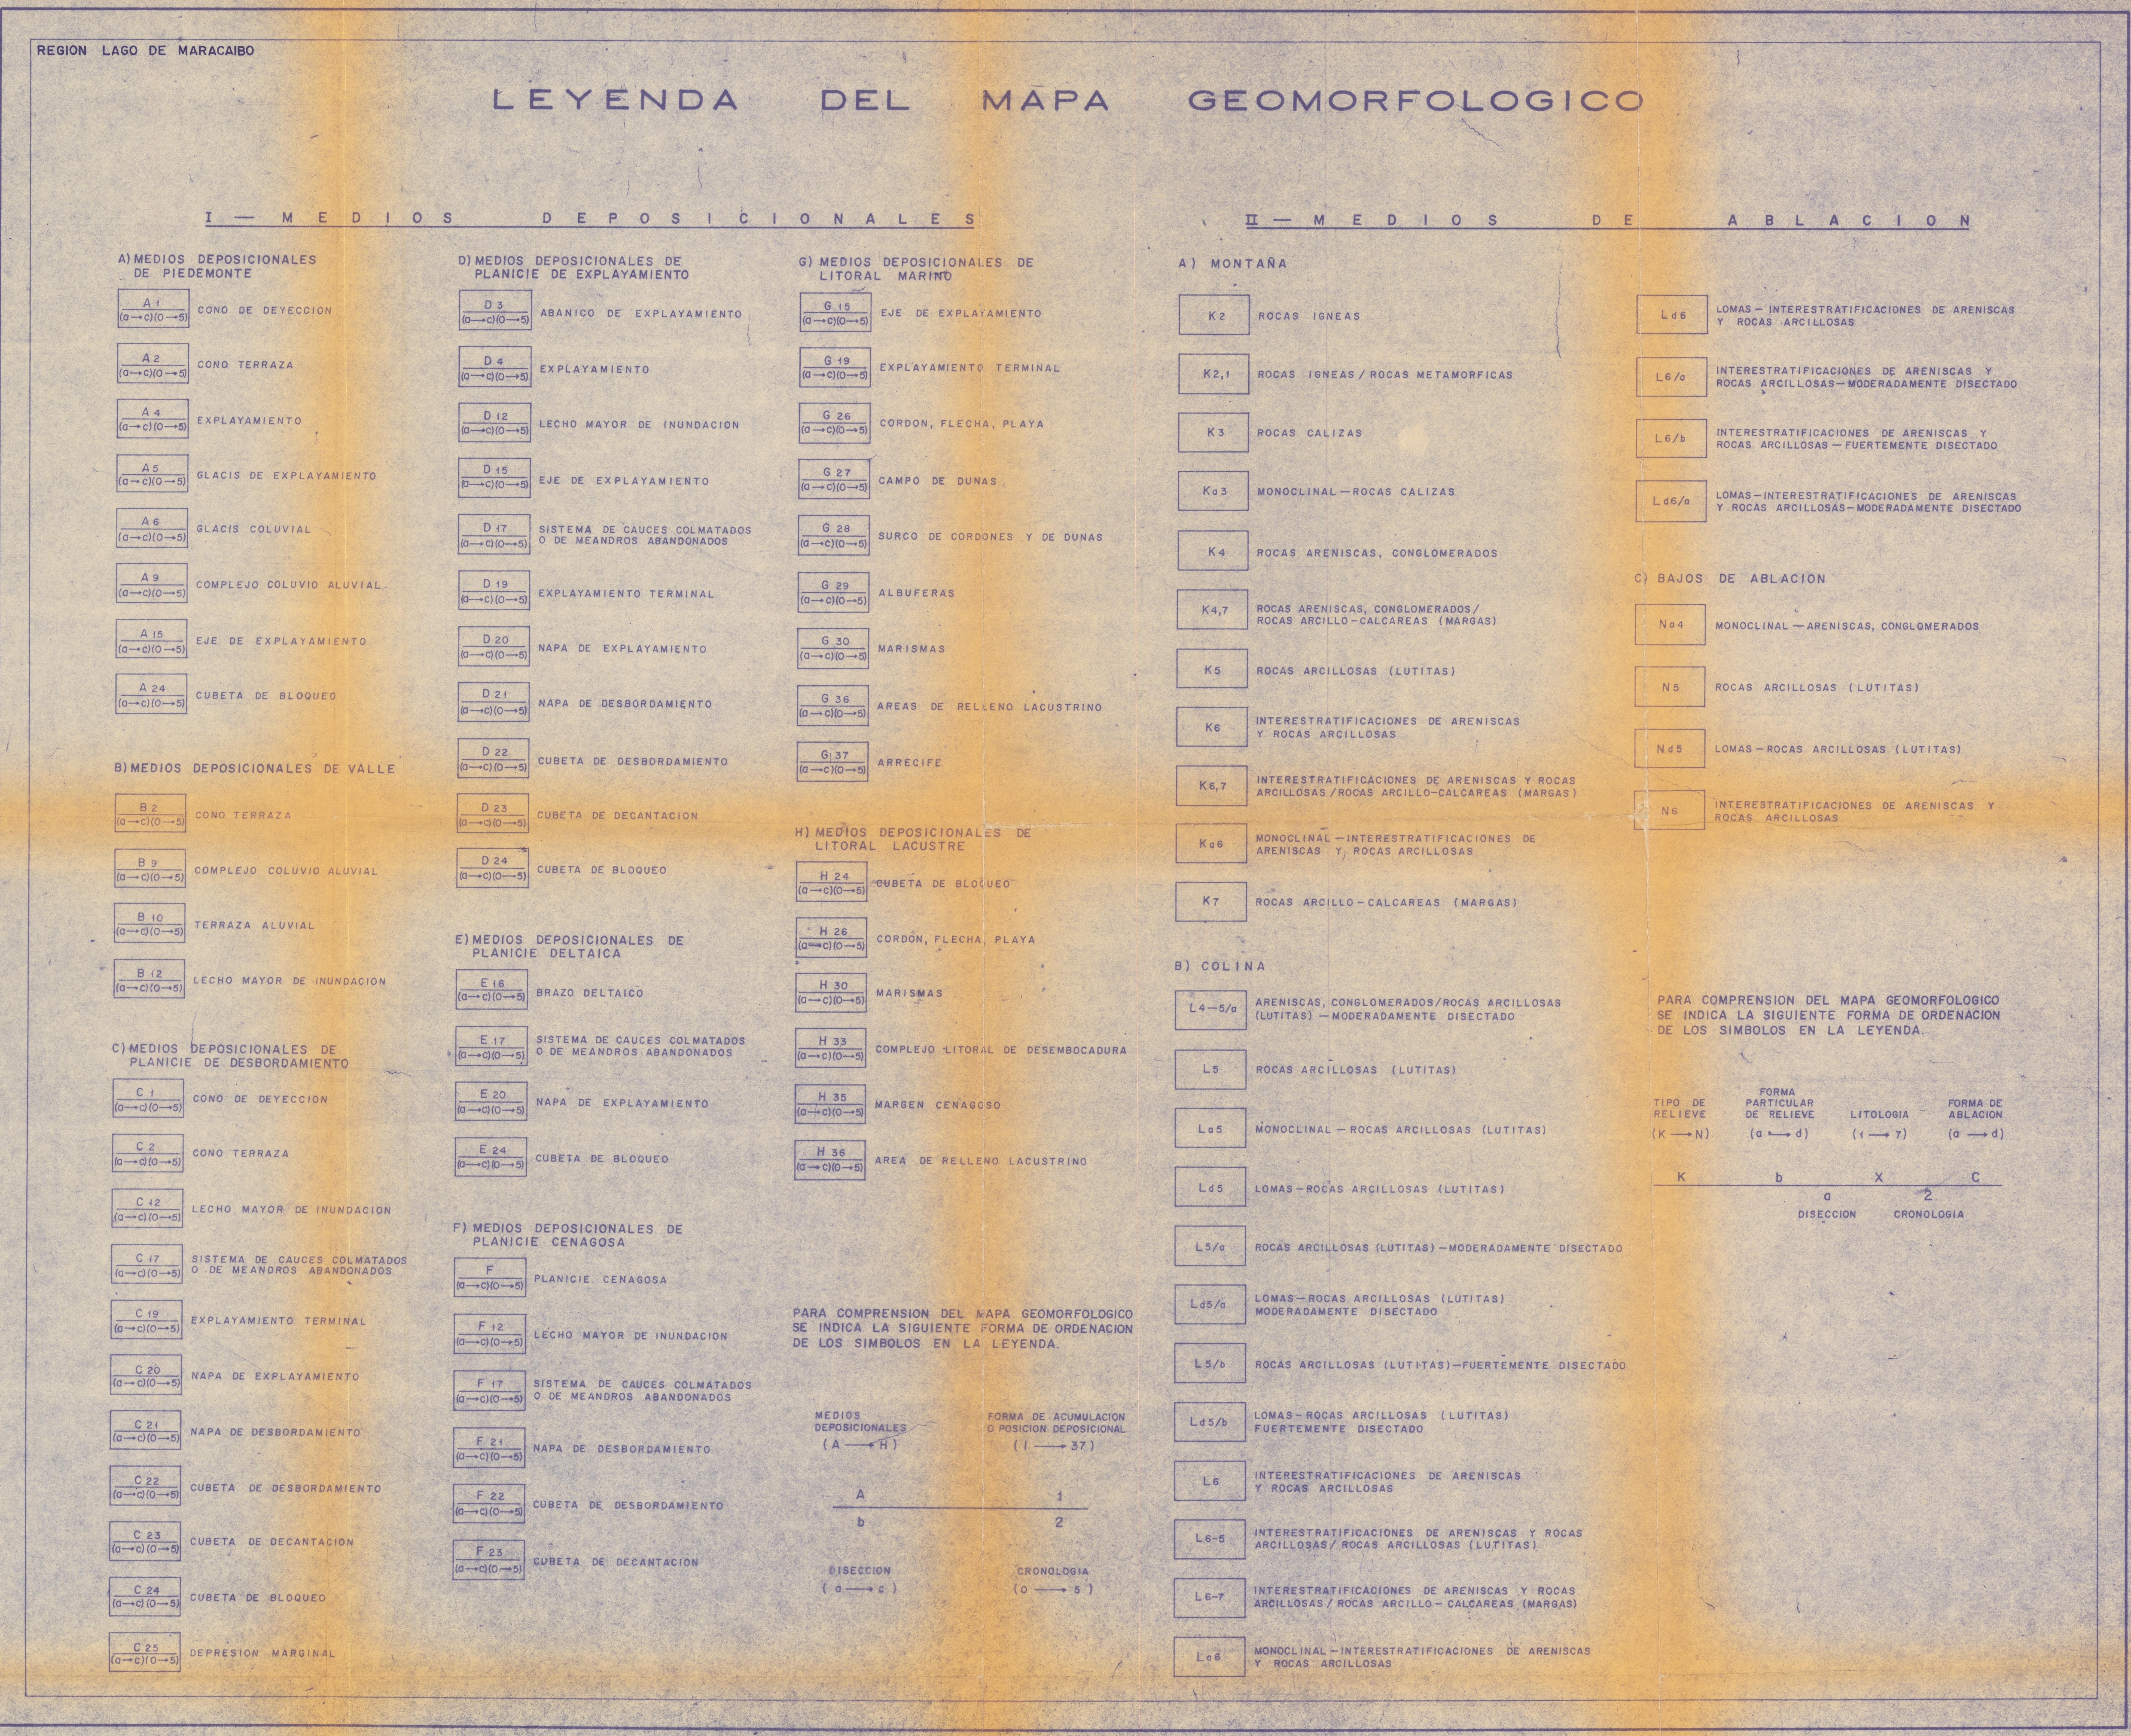 REGION LAGO DE MARACAIBO
LEYENDA DEL MAPA GEOMORFOLOGICO
I — MEDIOS DEPOSICIONALES
A) MEDIOS DEPOSICIONALES
DE PIEDEMONTE
A 1
(a→c)(0→5)
CONO DE DEYECCION
A 2
(a→c)(0→5)
CONO TERRAZA
A 4
(a→c)(0→5)
EXPLAYAMIENTO
A 5
(a→c)(0→5)
GLACIS DE EXPLAYAMIENTO
A 6
(a→c)(0→5)
GLACIS COLUVIAL
A 9
(a→c)(0→5)
COMPLEJO COLUVIO ALUVIAL
A 15
(a→c)(0→5)
EJE DE EXPLAYAMIENTO
A 24
(a→c)(0→5)
CUBETA DE BLOQUEO
B) MEDIOS DEPOSICIONALES DE VALLE
B 2
(a→c)(0→5)
CONO TERRAZA
B 9
(a→c)(0→5)
COMPLEJO COLUVIO ALUVIAL
B 10
(a→c)(0→5)
TERRAZA ALUVIAL
B 12
(a→c)(0→5)
LECHO MAYOR DE INUNDACION
C) MEDIOS DEPOSICIONALES DE
PLANICIE DE DESBORDAMIENTO
C 1
(a→c)(0→5)
CONO DE DEYECCION
C 2
(a→c)(0→5)
CONO TERRAZA
C 12
(a→c)(0→5)
LECHO MAYOR DE INUNDACION
C 17
(a→c)(0→5)
SISTEMA DE CAUCES COLMATADOS
O DE MEANDROS ABANDONADOS
C 19
(a→c)(0→5)
EXPLAYAMIENTO TERMINAL
C 20
(a→c)(0→5)
NAPA DE EXPLAYAMIENTO
C 21
(a→c)(0→5)
NAPA DE DESBORDAMIENTO
C 22
(a→c)(0→5)
CUBETA DE DESBORDAMIENTO
C 23
(a→c)(0→5)
CUBETA DE DECANTACION
C 24
(a→c)(0→5)
CUBETA DE BLOQUEO
C 25
(a→c)(0→5)
DEPRESION MARGINAL
D) MEDIOS DEPOSICIONALES DE
PLANICIE DE EXPLAYAMIENTO
D 3
(a→c)(0→5)
ABANICO DE EXPLAYAMIENTO
D 4
(a→c)(0→5)
EXPLAYAMIENTO
D 12
(a→c)(0→5)
LECHO MAYOR DE INUNDACION
D 15
(a→c)(0→5)
EJE DE EXPLAYAMIENTO
D 17
(a→c)(0→5)
SISTEMA DE CAUCES COLMATADOS
O DE MEANDROS ABANDONADOS
D 19
(a→c)(0→5)
EXPLAYAMIENTO TERMINAL
D 20
(a→c)(0→5)
NAPA DE EXPLAYAMIENTO
D 21
(a→c)(0→5)
NAPA DE DESBORDAMIENTO
D 22
(a→c)(0→5)
CUBETA DE DESBORDAMIENTO
D 23
(a→c)(0→5)
CUBETA DE DECANTACION
D 24
(a→c)(0→5)
CUBETA DE BLOQUEO
E) MEDIOS DEPOSICIONALES DE
PLANICIE DELTAICA
E 16
(a→c)(0→5)
BRAZO DELTAICO
E 17
(a→c)(0→5)
SISTEMA DE CAUCES COLMATADOS
O DE MEANDROS ABANDONADOS
E 20
(a→c)(0→5)
NAPA DE EXPLAYAMIENTO
E 24
(a→c)(0→5)
CUBETA DE BLOQUEO
F) MEDIOS DEPOSICIONALES DE
PLANICIE CENAGOSA
F
(a→c)(0→5)
PLANICIE CENAGOSA
F 12
(a→c)(0→5)
LECHO MAYOR DE INUNDACION
F 17
(a→c)(0→5)
SISTEMA DE CAUCES COLMATADOS
O DE MEANDROS ABANDONADOS
F 21
(a→c)(0→5)
NAPA DE DESBORDAMIENTO
F 22
(a→c)(0→5)
CUBETA DE DESBORDAMIENTO
F 23
(a→c)(0→5)
CUBETA DE DECANTACION
G) MEDIOS DEPOSICIONALES DE
LITORAL MARINO
G 15
(a→c)(0→5)
EJE DE EXPLAYAMIENTO
G 19
(a→c)(0→5)
EXPLAYAMIENTO TERMINAL
G 26
(a→c)(0→5)
CORDON, FLECHA, PLAYA
G 27
(a→c)(0→5)
CAMPO DE DUNAS
G 28
(a→c)(0→5)
SURCO DE CORDONES Y DE DUNAS
G 29
(a→c)(0→5)
ALBUFERAS
G 30
(a→c)(0→5)
MARISMAS
G 36
(a→c)(0→5)
AREAS DE RELLENO LACUSTRINO
G 37
(a→c)(0→5)
ARRECIFE
H) MEDIOS DEPOSICIONALES DE
LITORAL LACUSTRE
H 24
(a→c)(0→5)
CUBETA DE BLOQUEO
H 26
(a→c)(0→5)
CORDON, FLECHA, PLAYA
H 30
(a→c)(0→5)
MARISMAS
H 33
(a→c)(0→5)
COMPLEJO LITORAL DE DESEMBOCADURA
H 35
(a→c)(0→5)
MARGEN CENAGOSO
H 36
(a→c)(0→5)
AREA DE RELLENO LACUSTRINO
PARA COMPRENSION DEL MAPA GEOMORFOLOGICO
SE INDICA LA SIGUIENTE FORMA DE ORDENACION
DE LOS SIMBOLOS EN LA LEYENDA.
MEDIOS
DEPOSICIONALES
(A → H)
FORMA DE ACUMULACION
O POSICION DEPOSICIONAL
(1 → 37)
A 1
b 2
DISECCION CRONOLOGIA
(a → c) (0 → 5)
II — MEDIOS DE ABLACION
A) MONTAÑA
K2
ROCAS IGNEAS
K2,1
ROCAS IGNEAS / ROCAS METAMORFICAS
K3
ROCAS CALIZAS
Ka3
MONOCLINAL — ROCAS CALIZAS
K4
ROCAS ARENISCAS, CONGLOMERADOS
K4,7
ROCAS ARENISCAS, CONGLOMERADOS/
ROCAS ARCILLO-CALCAREAS (MARGAS)
K5
ROCAS ARCILLOSAS (LUTITAS)
K6
INTERESTRATIFICACIONES DE ARENISCAS
Y ROCAS ARCILLOSAS
K6,7
INTERESTRATIFICACIONES DE ARENISCAS Y ROCAS
ARCILLOSAS / ROCAS ARCILLO-CALCAREAS (MARGAS)
Ka6
MONOCLINAL — INTERESTRATIFICACIONES DE
ARENISCAS Y ROCAS ARCILLOSAS
K7
ROCAS ARCILLO-CALCAREAS (MARGAS)
B) COLINA
L4-5/a
ARENISCAS, CONGLOMERADOS/ROCAS ARCILLOSAS
(LUTITAS) — MODERADAMENTE DISECTADO
L5
ROCAS ARCILLOSAS (LUTITAS)
La5
MONOCLINAL — ROCAS ARCILLOSAS (LUTITAS)
Ld5
LOMAS — ROCAS ARCILLOSAS (LUTITAS)
L5/a
ROCAS ARCILLOSAS (LUTITAS) — MODERADAMENTE DISECTADO
Ld5/a
LOMAS — ROCAS ARCILLOSAS (LUTITAS)
MODERADAMENTE DISECTADO
L5/b
ROCAS ARCILLOSAS (LUTITAS) — FUERTEMENTE DISECTADO
Ld5/b
LOMAS — ROCAS ARCILLOSAS (LUTITAS)
FUERTEMENTE DISECTADO
L6
INTERESTRATIFICACIONES DE ARENISCAS
Y ROCAS ARCILLOSAS
L6-5
INTERESTRATIFICACIONES DE ARENISCAS Y ROCAS
ARCILLOSAS / ROCAS ARCILLOSAS (LUTITAS)
L6-7
INTERESTRATIFICACIONES DE ARENISCAS Y ROCAS
ARCILLOSAS / ROCAS ARCILLO-CALCAREAS (MARGAS)
La6
MONOCLINAL — INTERESTRATIFICACIONES DE ARENISCAS
Y ROCAS ARCILLOSAS
Ld6
LOMAS — INTERESTRATIFICACIONES DE ARENISCAS
Y ROCAS ARCILLOSAS
L6/a
INTERESTRATIFICACIONES DE ARENISCAS Y
ROCAS ARCILLOSAS — MODERADAMENTE DISECTADO
L6/b
INTERESTRATIFICACIONES DE ARENISCAS Y
ROCAS ARCILLOSAS — FUERTEMENTE DISECTADO
Ld6/a
LOMAS — INTERESTRATIFICACIONES DE ARENISCAS
Y ROCAS ARCILLOSAS — MODERADAMENTE DISECTADO
C) BAJOS DE ABLACION
Na4
MONOCLINAL — ARENISCAS, CONGLOMERADOS
N5
ROCAS ARCILLOSAS (LUTITAS)
Nd5
LOMAS — ROCAS ARCILLOSAS (LUTITAS)
N6
INTERESTRATIFICACIONES DE ARENISCAS Y
ROCAS ARCILLOSAS
PARA COMPRENSION DEL MAPA GEOMORFOLOGICO
SE INDICA LA SIGUIENTE FORMA DE ORDENACION
DE LOS SIMBOLOS EN LA LEYENDA.
TIPO DE
RELIEVE
(K → N)
FORMA
PARTICULAR
DE RELIEVE
(a → d)
LITOLOGIA
(1 → 7)
FORMA DE
ABLACION
(a → d)
K b X C
a 2
DISECCION CRONOLOGIA